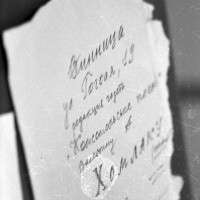 Винница
ул Гоголя, 19
редакция газеты
"Комсомольское племя"
Хомлаку